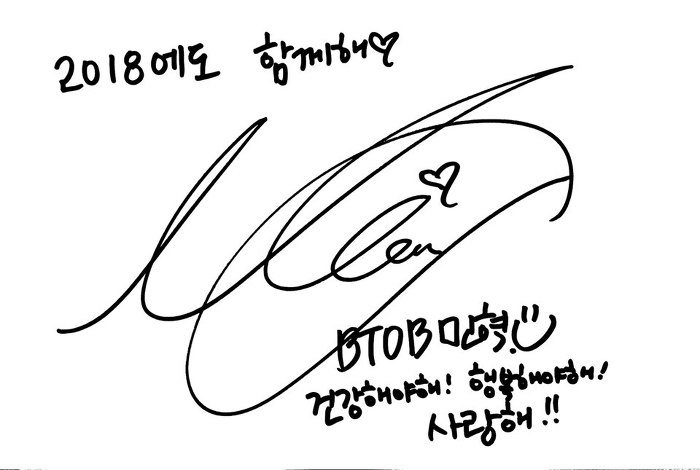 2018에도 함께해♡
BTOB 민혁!
건강해야해! 행복해야해!
사랑해!!